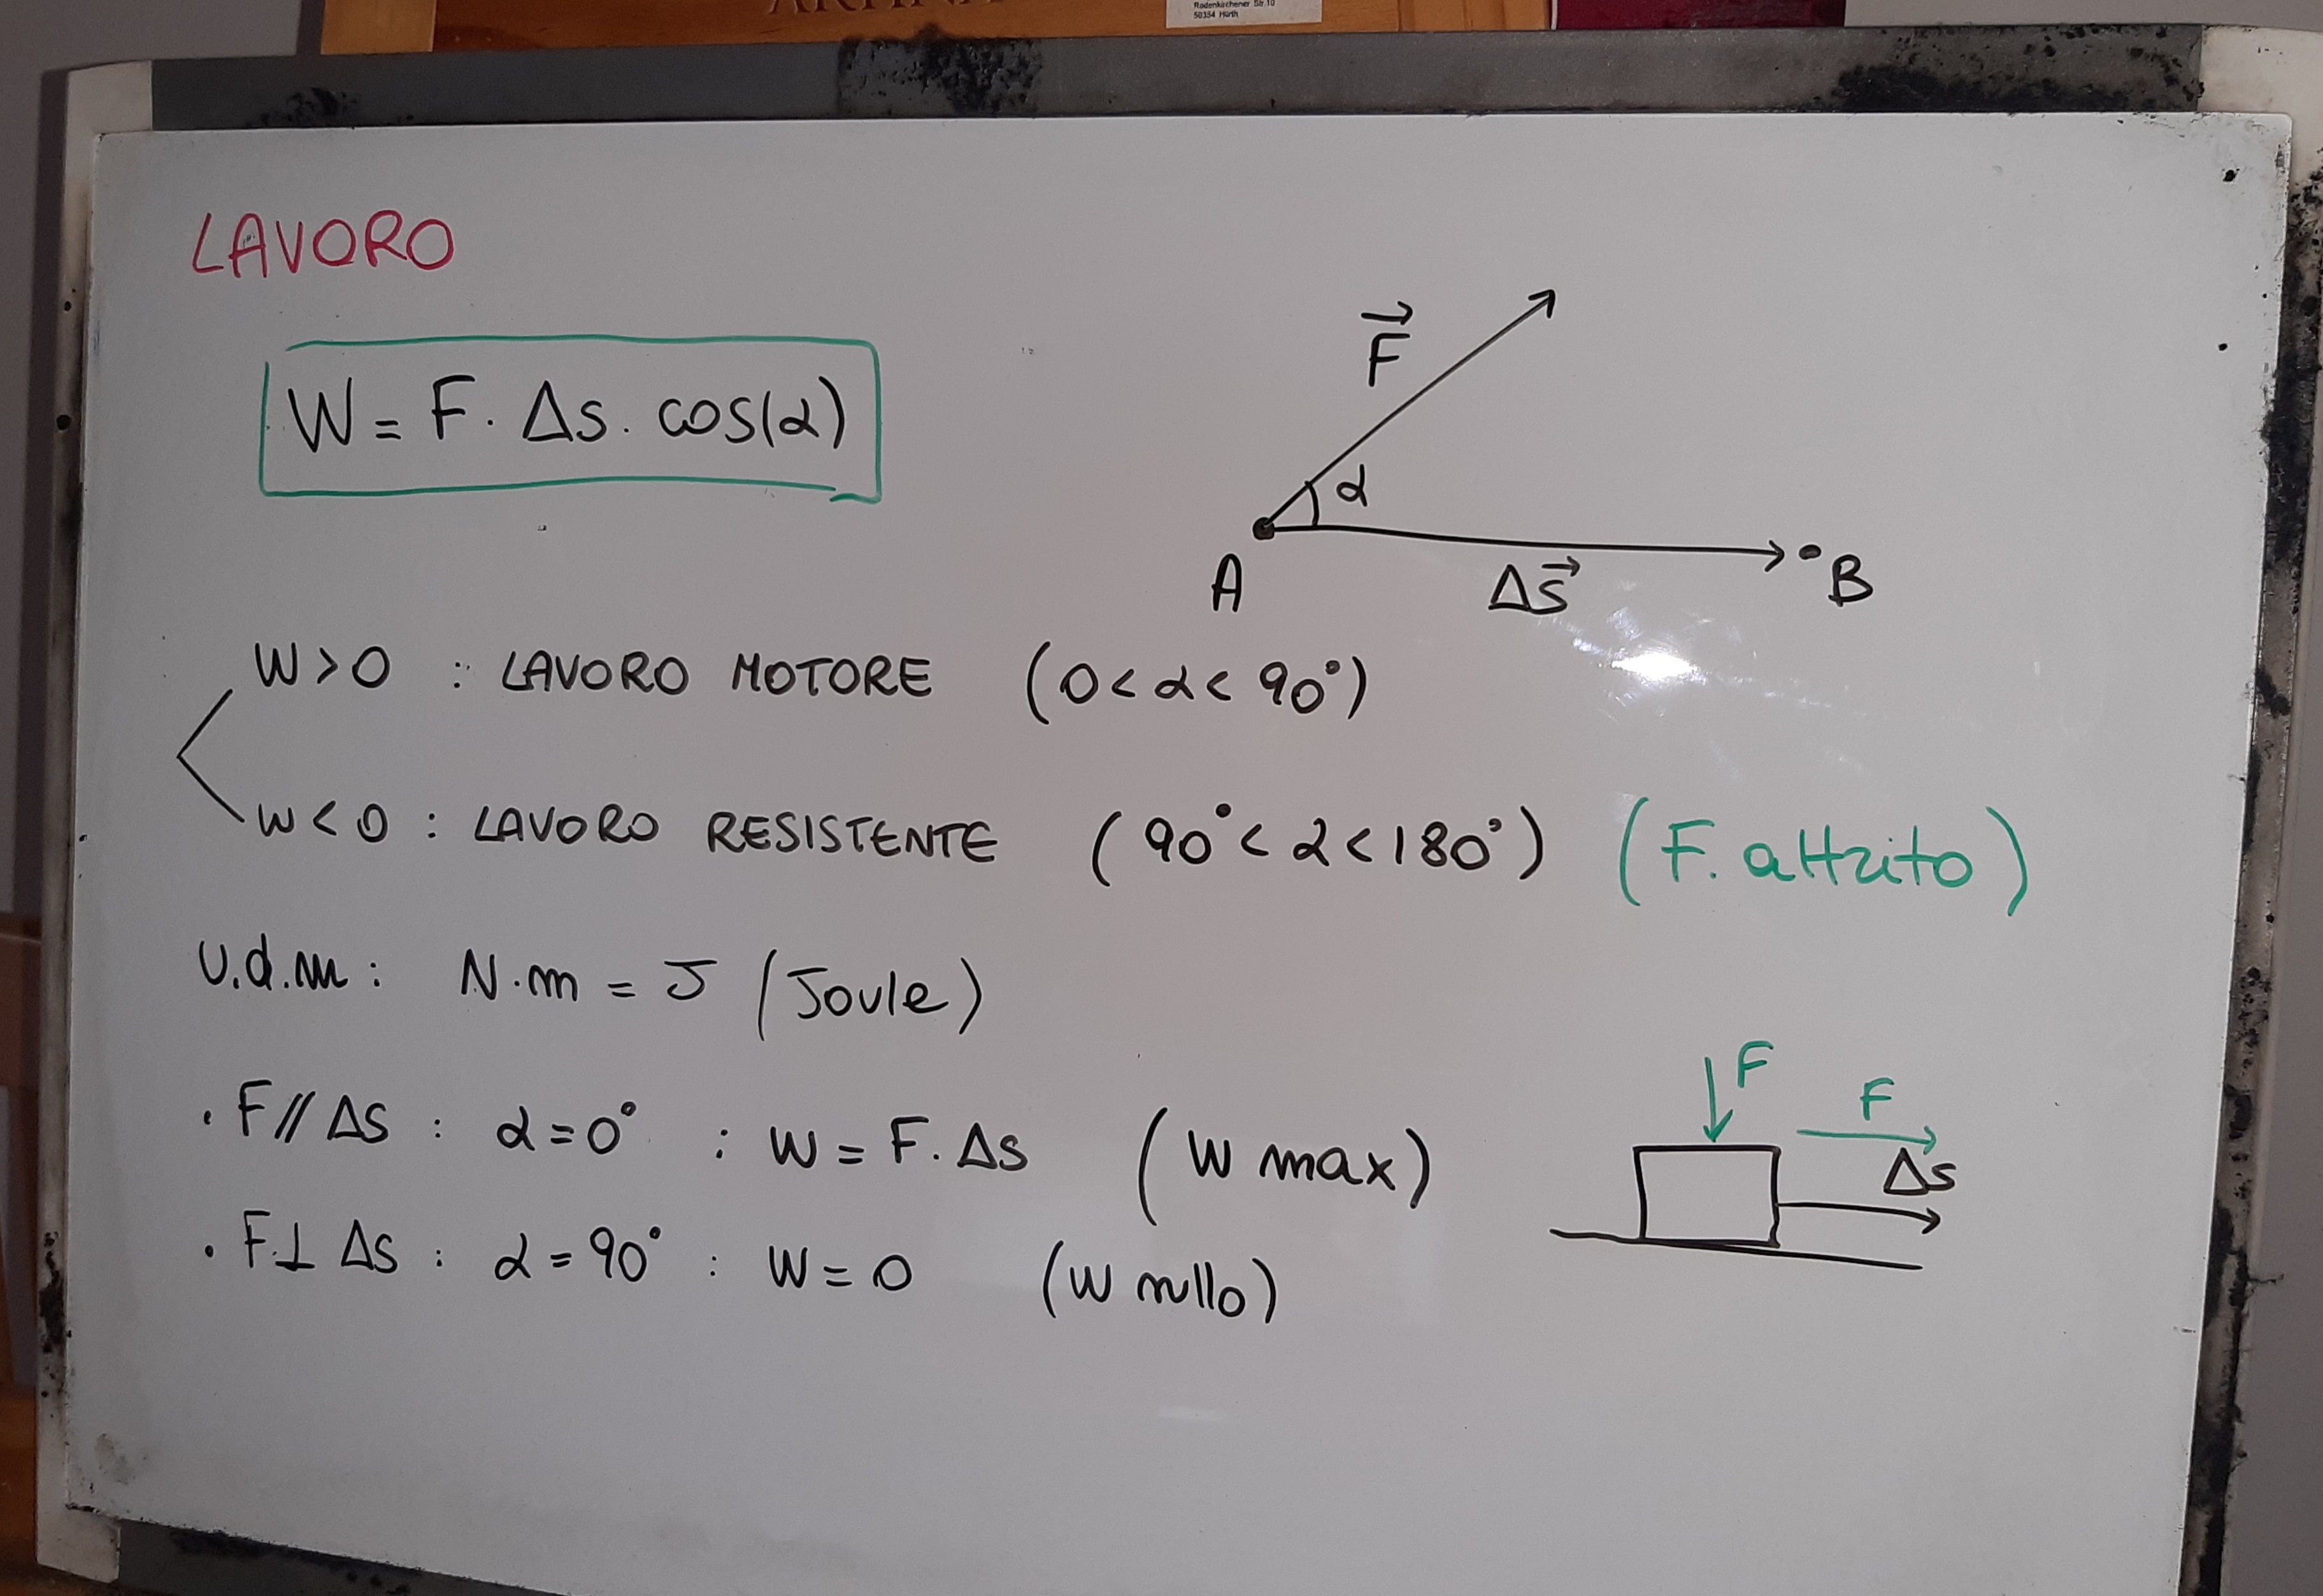 Rodenkirchener Str. 10
50354 Hürth
LAVORO
W = F · Δs · cos(α)
F
α
A
Δs
B
W > 0 : LAVORO MOTORE (0 < α < 90°)
W < 0 : LAVORO RESISTENTE (90° < α < 180°) (F. attrito)
U.d.m : N·m = J (Joule)
F
F
Δs
· F // Δs : α = 0° : W = F · Δs (W max)
· F ⊥ Δs : α = 90° : W = 0 (W nullo)